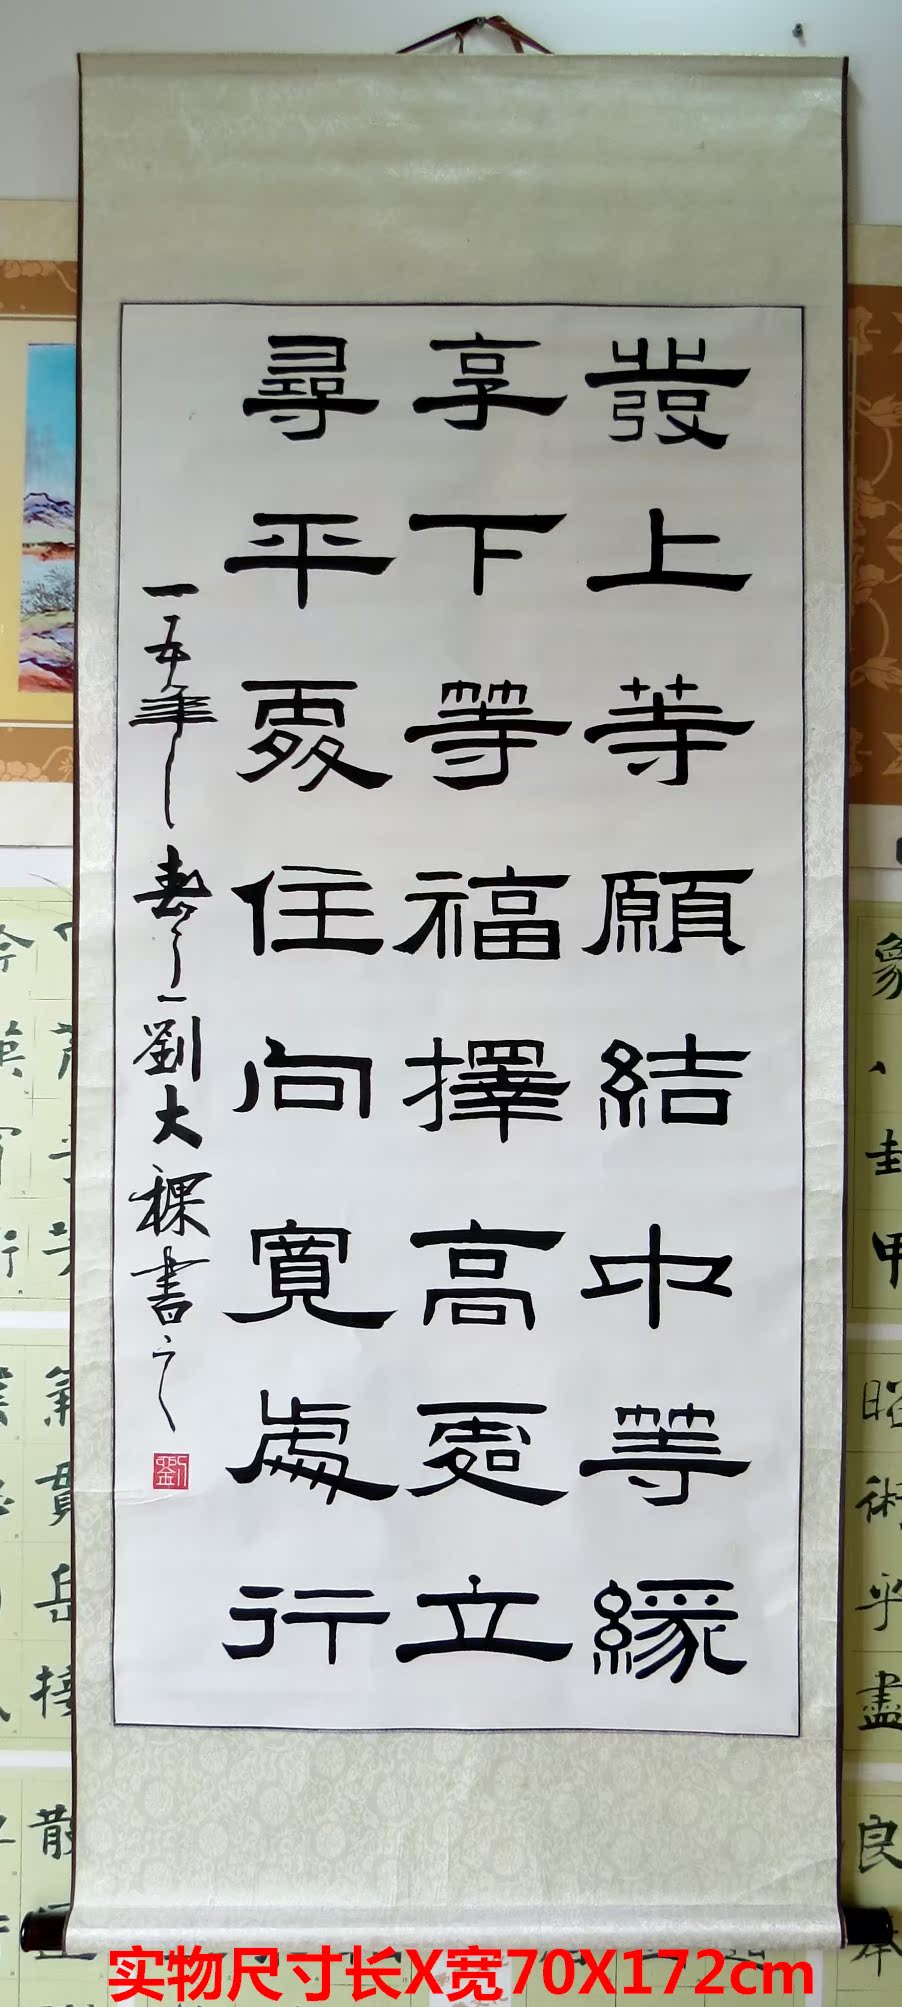 發上等願結中等緣
享下等福擇高處立
尋平處住向寬處行
一五年 春 劉大稞書之
劉
实物尺寸长X宽70X172cm